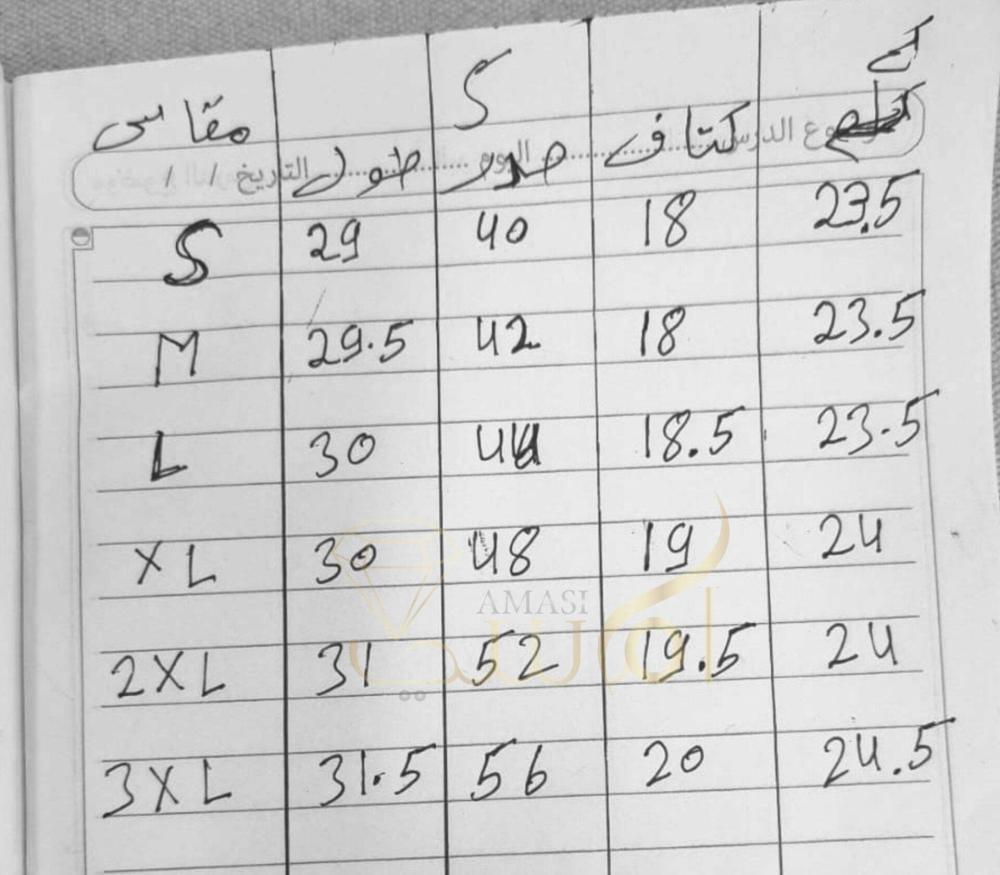 كم
S
مقاس طول صدر كتاف
موضوع الدرس اليوم التاريخ / /
S 29 40 18 23.5
M 29.5 42 18 23.5
L 30 44 18.5 23.5
XL 30 48 19 24
AMASI
أماسي
2XL 31 52 19.5 24
3XL 31.5 56 20 24.5